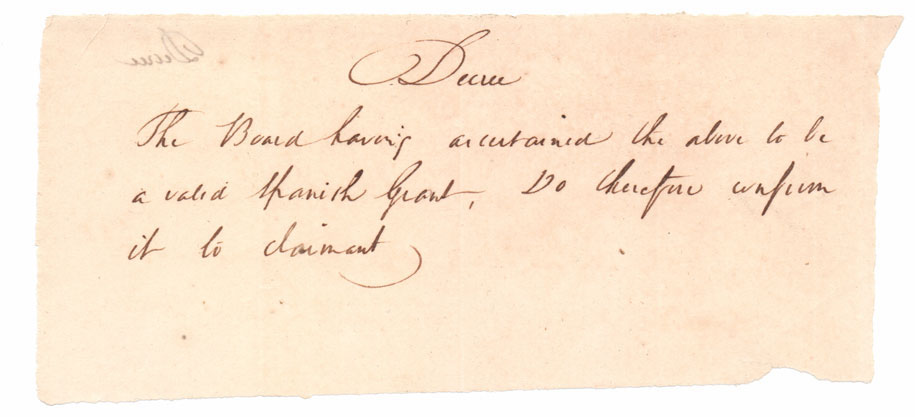 Decree
The Board having ascertained the above to be
a valid Spanish Grant, Do therefore confirm
it to claimant